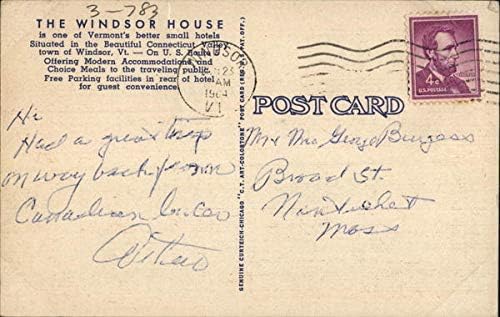 3-783
THE WINDSOR HOUSE
is one of Vermont's better small hotels
Situated in the Beautiful Connecticut Valley
town of Windsor, Vt. — On U. S. Route 5
Offering Modern Accommodations and
Choice Meals to the traveling public.
Free Parking facilities in rear of hotel
for guest convenience.
WINDSOR
23
AM
1964
VT.
4¢
U.S. POSTAGE
POST CARD
GENUINE CURTEICH-CHICAGO "C. T. ART-COLORTONE" POST CARD (REG. U. S. PAT. OFF.)
Hi
Had a great trip
on way back from
Canadian
Mr Mrs George Burgess
Broad St
Nantucket
Mass